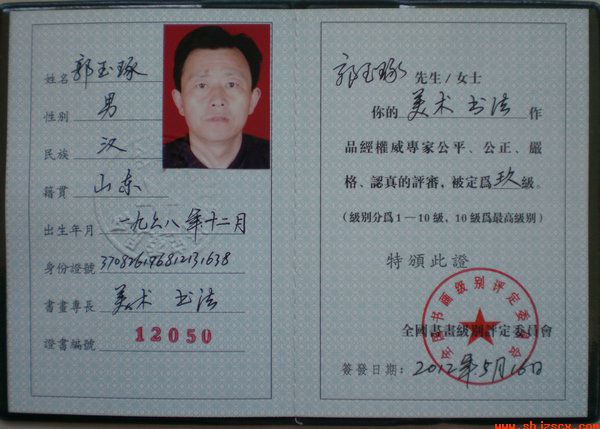 姓名 郭玉琢
性别 男
民族 汉
籍貫 山东
出生年月 一九六八年十二月
身份證號 370826196812131638
書畫專長 美术 书法
證書編號 12050
郭玉琢 先生/女士
你的 美术 书法 作
品經權威專家公平、公正、嚴
格、認真的評審,被定爲 玖 級。
(級别分爲1—10級,10級爲最高級别)
特頒此證
全國書畫級别評定委員會
簽發日期: 2012年5月16日
全国书画级别评定委员会
www.shjzscx.com